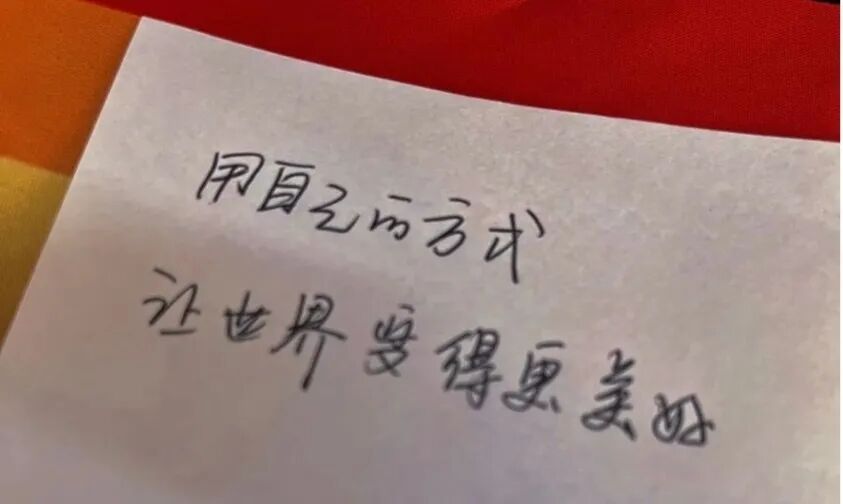 用自己的方式
让世界变得更美好